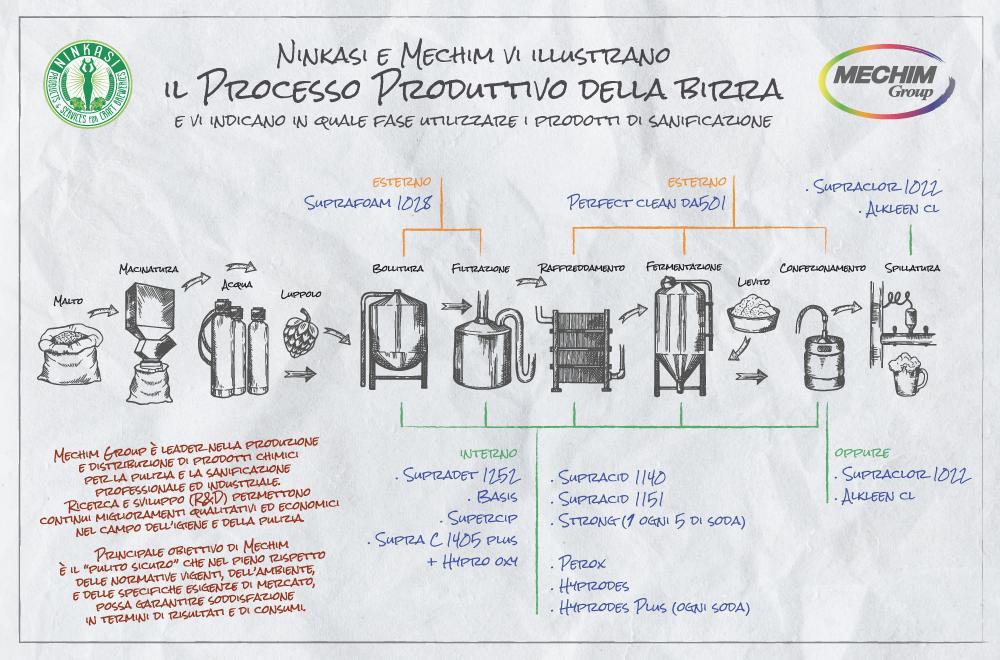 NINKASI
PRODUCTS & SERVICES FOR CRAFT BREWERS
Ninkasi e Mechim vi illustrano
il Processo Produttivo della birra
e vi indicano in quale fase utilizzare i prodotti di sanificazione
MECHIM
Group
esterno
Suprafoam 1028
esterno
Perfect clean da501
. Supraclor 1022
. Alkleen cl
Malto
Macinatura
Acqua
Luppolo
Bollitura
Filtrazione
Raffreddamento
Fermentazione
Lievito
Confezionamento
Spillatura
Mechim Group è leader nella produzione
e distribuzione di prodotti chimici
per la pulizia e la sanificazione
professionale ed industriale.
Ricerca e sviluppo (R&D) permettono
continui miglioramenti qualitativi ed economici
nel campo dell'igiene e della pulizia
Principale obiettivo di Mechim
è il "pulito sicuro" che nel pieno rispetto
delle normative vigenti, dell'ambiente,
e delle specifiche esigenze di mercato,
possa garantire soddisfazione
in termini di risultati e di consumi.
interno
. Supradet 1252
. Basis
. Supercip
. Supra C 1405 plus
+ Hypro oxy
. Supracid 1140
. Supracid 1151
. Strong (1 ogni 5 di soda)
. Perox
. Hyprodes
. Hyprodes Plus (ogni soda)
oppure
. Supraclor 1022
. Alkleen cl